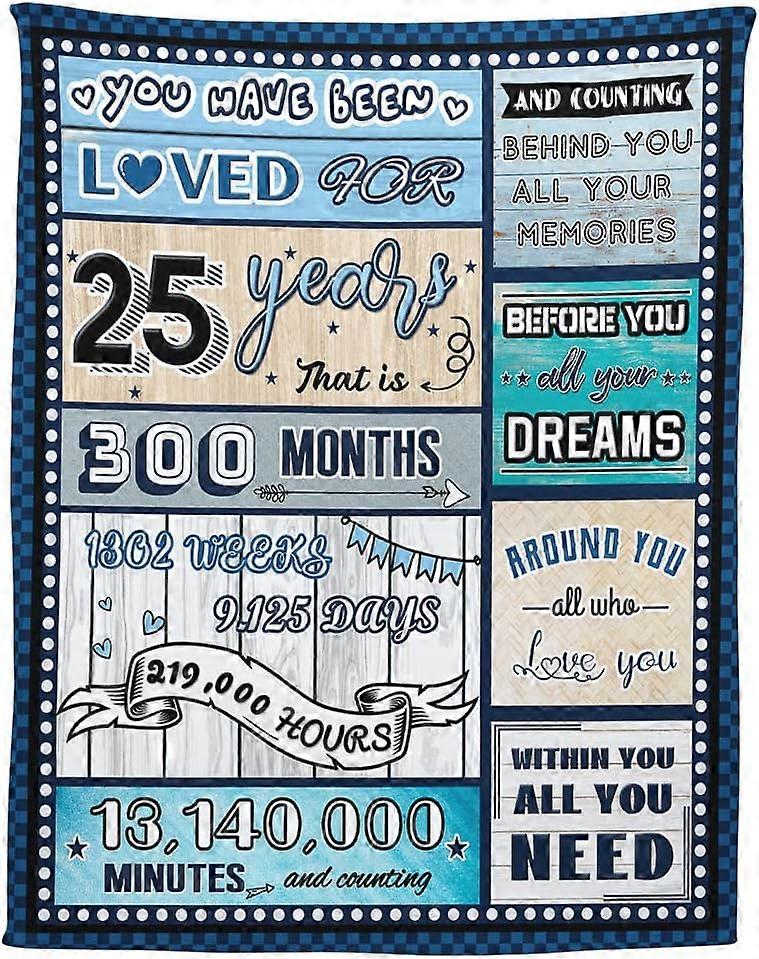 YOU HAVE BEEN
LOVED FOR
25 years
That is
300 MONTHS
1302 WEEKS
9.125 DAYS
219,000 HOURS
13,140,000
MINUTES and counting
AND COUNTING
BEHIND YOU
ALL YOUR
MEMORIES
BEFORE YOU
all your
DREAMS
AROUND YOU
all who
Love you
WITHIN YOU
ALL YOU
NEED